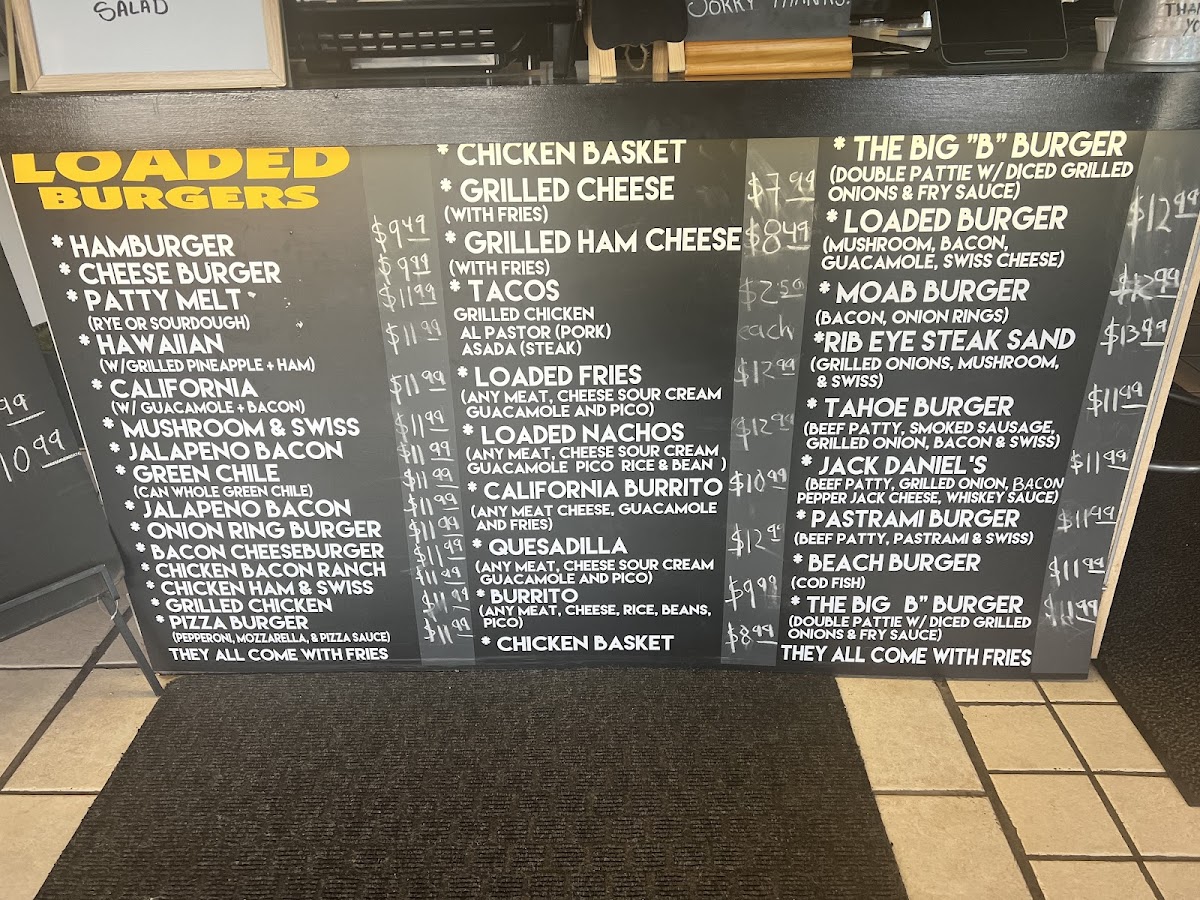 SALAD
SORRY THANKS!
LOADED
BURGERS
* HAMBURGER $9.49
* CHEESE BURGER $9.99
* PATTY MELT $11.99
(RYE OR SOURDOUGH)
* HAWAIIAN $11.99
(W/GRILLED PINEAPPLE + HAM)
* CALIFORNIA $11.99
(W/ GUACAMOLE + BACON)
* MUSHROOM & SWISS $11.99
* JALAPENO BACON $11.99
* GREEN CHILE $11.99
(CAN WHOLE GREEN CHILE)
* JALAPENO BACON $11.99
* ONION RING BURGER $11.99
* BACON CHEESEBURGER $11.99
* CHICKEN BACON RANCH $11.99
* CHICKEN HAM & SWISS
* GRILLED CHICKEN $11.99
* PIZZA BURGER $11.99
(PEPPERONI, MOZZARELLA, & PIZZA SAUCE)
THEY ALL COME WITH FRIES
* CHICKEN BASKET
* GRILLED CHEESE $7.99
(WITH FRIES)
* GRILLED HAM CHEESE $8.49
(WITH FRIES)
* TACOS $2.50
GRILLED CHICKEN
AL PASTOR (PORK) each
ASADA (STEAK)
* LOADED FRIES $12.99
(ANY MEAT, CHEESE SOUR CREAM
GUACAMOLE AND PICO)
* LOADED NACHOS $12.99
(ANY MEAT, CHEESE SOUR CREAM
GUACAMOLE PICO RICE & BEAN )
* CALIFORNIA BURRITO $10.99
(ANY MEAT CHEESE, GUACAMOLE
AND FRIES)
* QUESADILLA $12.99
(ANY MEAT, CHEESE SOUR CREAM
GUACAMOLE AND PICO)
* BURRITO $9.99
(ANY MEAT, CHEESE, RICE, BEANS,
PICO)
* CHICKEN BASKET $8.99
* THE BIG "B" BURGER
(DOUBLE PATTIE W/ DICED GRILLED
ONIONS & FRY SAUCE)
* LOADED BURGER $12.99
(MUSHROOM, BACON,
GUACAMOLE, SWISS CHEESE)
* MOAB BURGER $12.99
(BACON, ONION RINGS)
*RIB EYE STEAK SAND $13.99
(GRILLED ONIONS, MUSHROOM,
& SWISS)
* TAHOE BURGER $11.99
(BEEF PATTY, SMOKED SAUSAGE,
GRILLED ONION, BACON & SWISS)
* JACK DANIEL'S $11.99
(BEEF PATTY, GRILLED ONION, BACON
PEPPER JACK CHEESE, WHISKEY SAUCE)
* PASTRAMI BURGER $11.99
(BEEF PATTY, PASTRAMI & SWISS)
* BEACH BURGER $11.99
(COD FISH)
* THE BIG B" BURGER $11.99
(DOUBLE PATTIE W/ DICED GRILLED
ONIONS & FRY SAUCE)
THEY ALL COME WITH FRIES
10.99